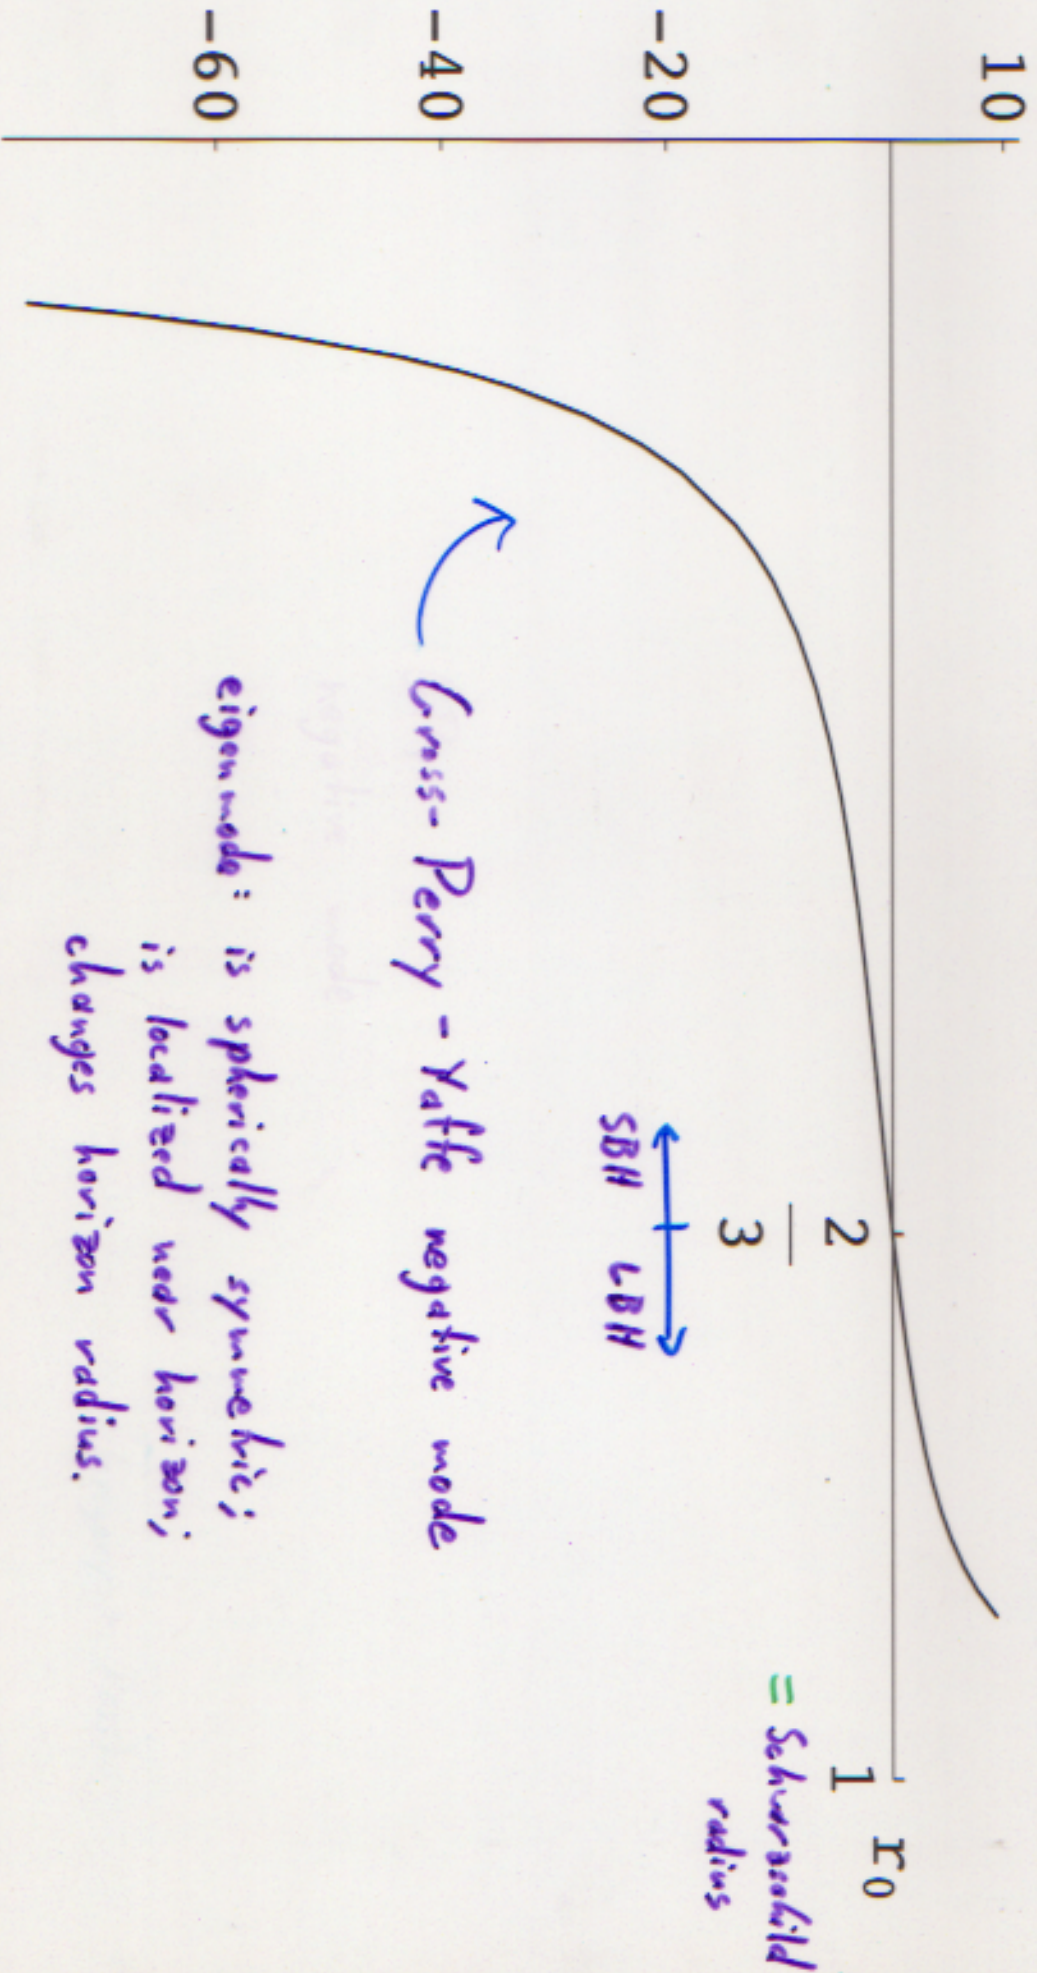 10
-20
-40
-60
2
3
1
r₀
= Schwarzschild
radius
SBH LBH
Gross-Perry-Yaffe negative mode
eigenmode: is spherically symmetric;
is localized near horizon;
changes horizon radius.
negative mode